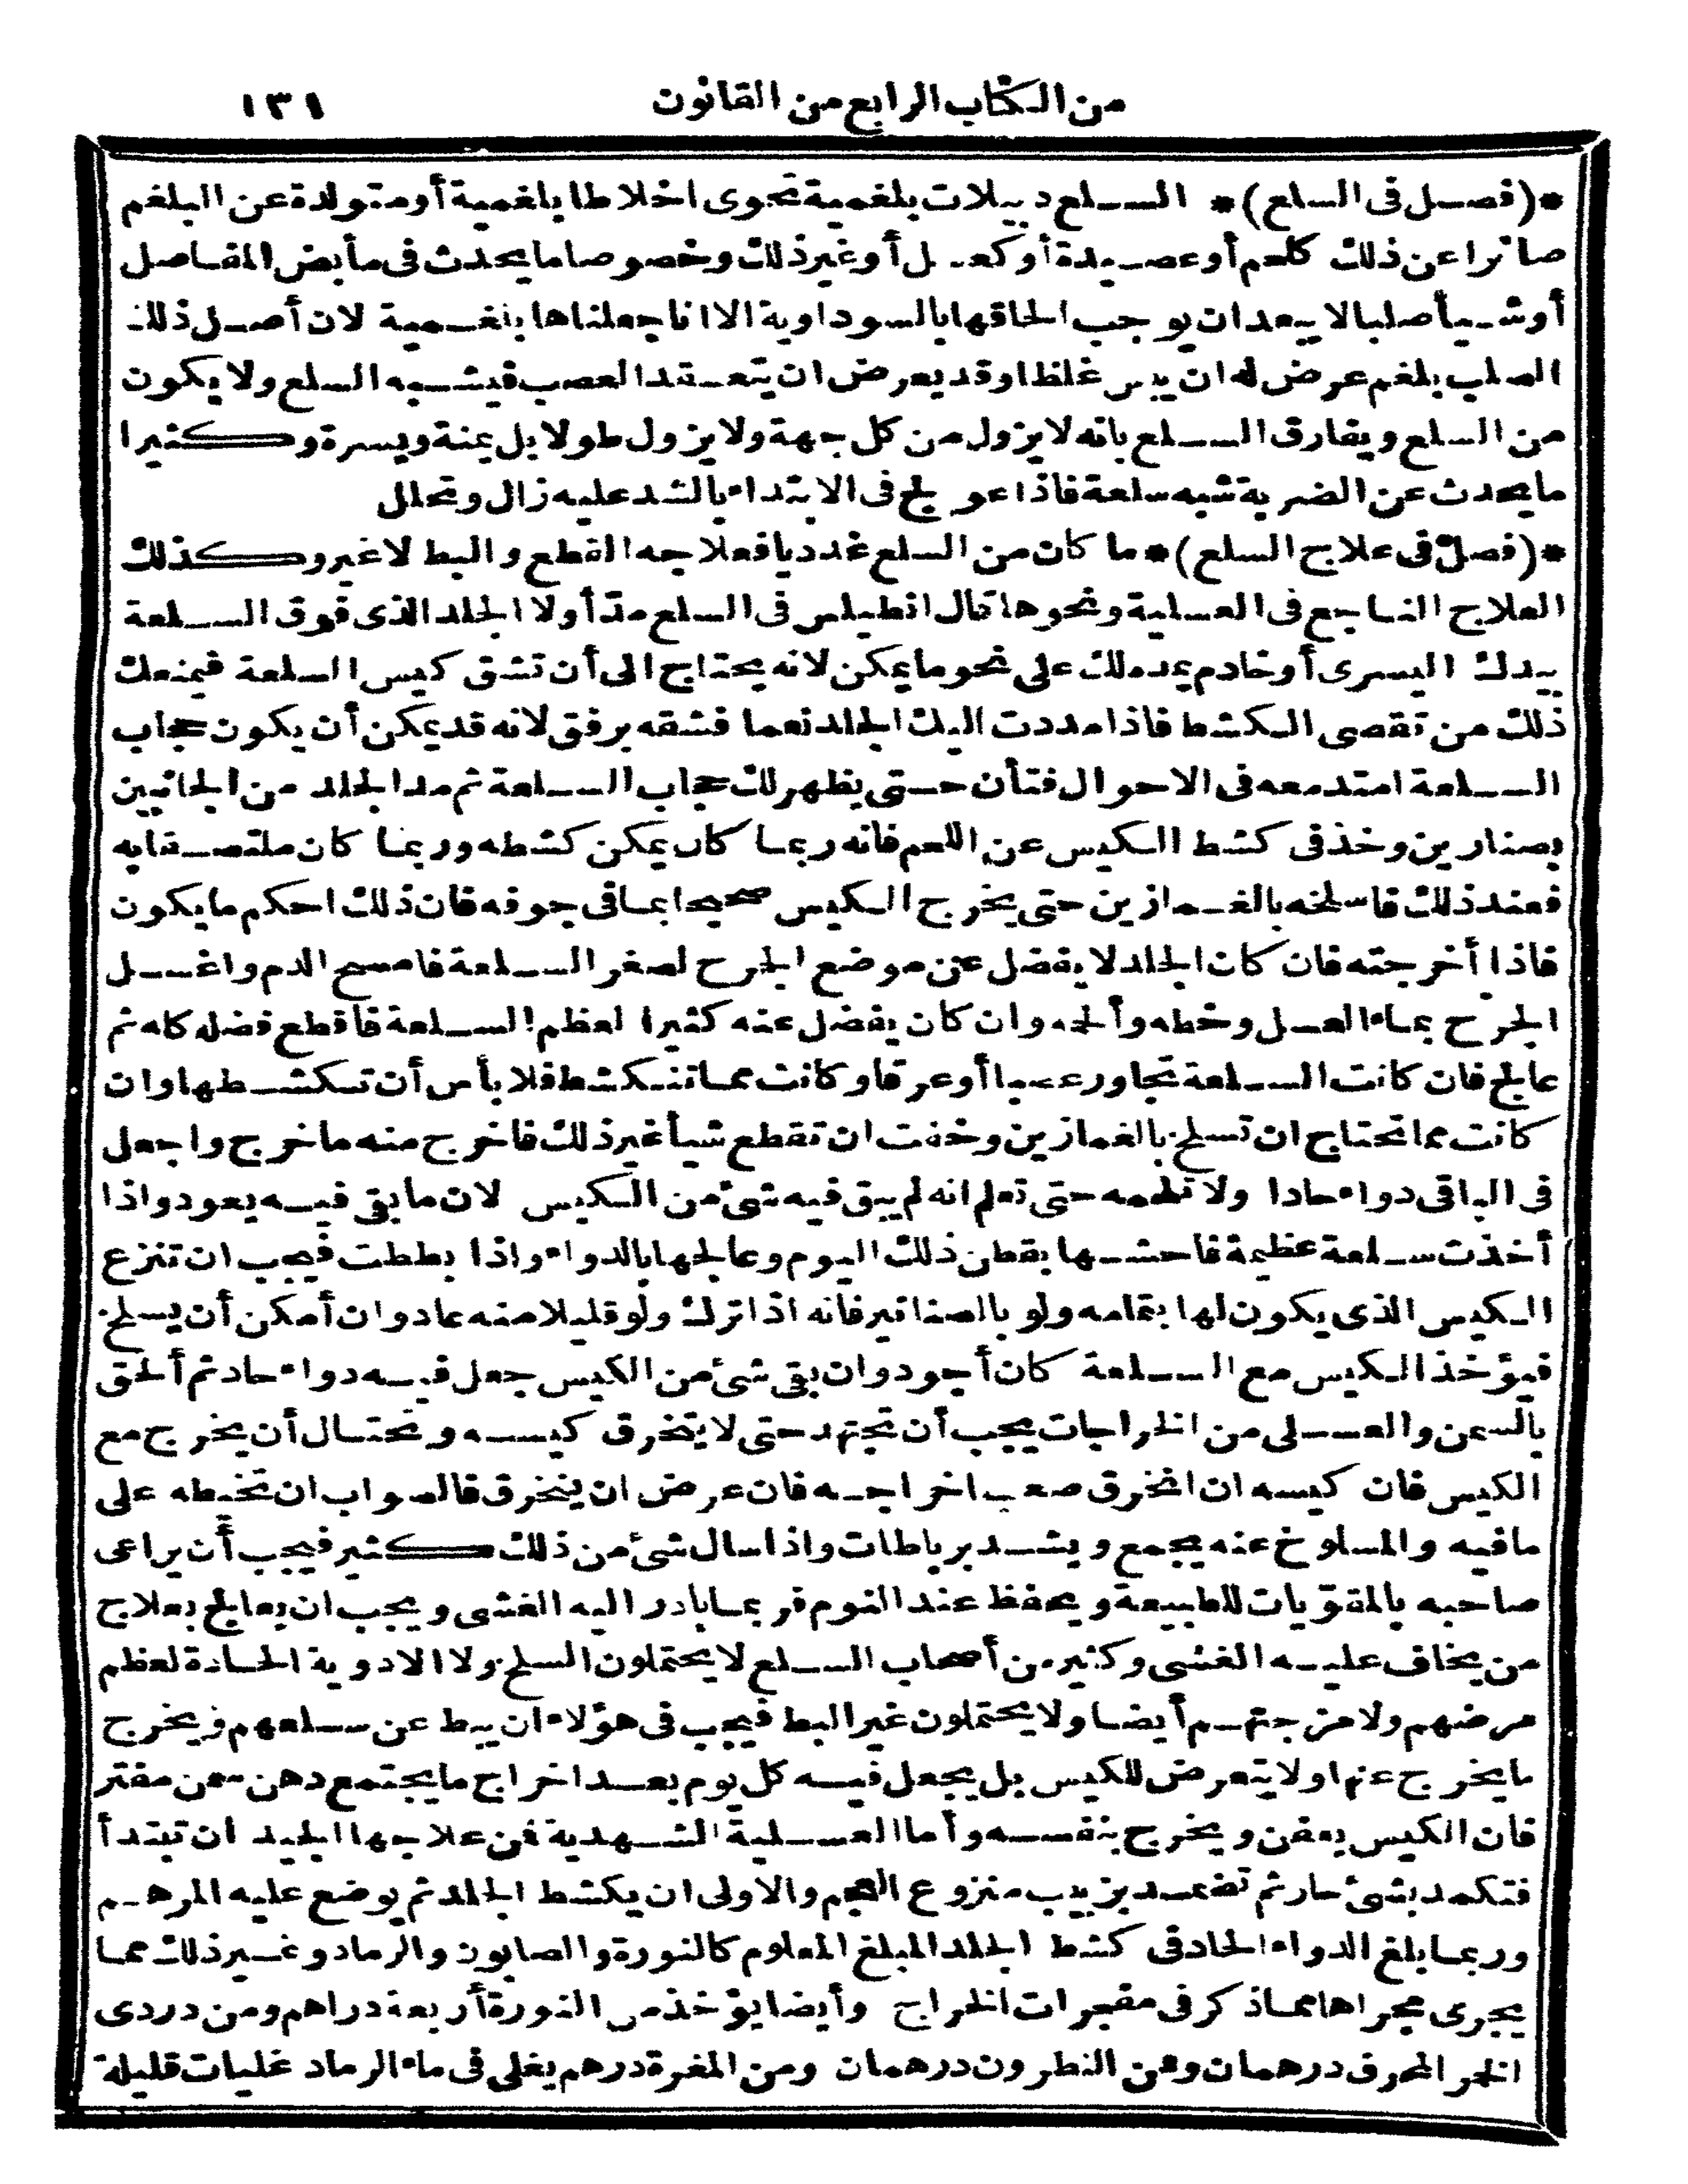 من الكتاب الرابع من القانون ١٣١
*(فصل فى السلع)* السلع دبيلات بلغمية تحوى اخلاطا بلغمية أو متولدة عن البلغم
صائرا عن ذلك كلحم أو عصيدة أو كعسل أو غير ذلك وخصوصا ما يحدث فى مأبض المفاصل
أو شيأ صلبا لا يبعد ان يوجب الحاقها بالسوداوية الا انا جعلناها بلغمية لان أصل ذلك
الصلب بلغم عرض له ان يبس غلظا وقد يعرض ان يتعقد العصب فيشبه السلع ولا يكون
من السلع ويفارق السلع بانه لا يزول من كل جهة ولا يزول طولا بل يمنة ويسرة وكثيرا
ما يحدث عن الضربة شبه سلعة فاذا عولج فى الابتداء بالشد عليه زال وتحلل
*(فصل فى علاج السلع)* ما كان من السلع غدديا فعلاجه القطع والبط لا غير وكذلك
العلاج الناجع فى العسلية ونحوها قال انطيلس فى السلع مد أولا الجلد الذى فوق السلعة
بيدك اليسرى أو خادم يمد لك على نحو ما يمكن لانه يحتاج الى أن تشق كيس السلعة فيمنعك
ذلك من تقصى الكشط فاذا مددت اليك الجلد نعما فشقه برفق لانه قد يمكن أن يكون حجاب
السلعة امتد معه فى الاحوال فتأن حتى يظهر لك حجاب السلعة ثم مد الجلد من الجانبين
بصنارين وخذ فى كشط الكيس عن اللحم فانه ربما كان يمكن كشطه وربما كان ملتصقا به
فعند ذلك فاسلخه بالغمازين حتى يخرج الكيس صحيحا بما فى جوفه فان ذلك احكم ما يكون
فاذا أخرجته فان كان الجلد لا يفضل عن موضع الجرح لصغر السلعة فامسح الدم واغسل
الجرح بماء العسل وخطه وألحمه وان كان يفضل عنه كثيرا لعظم السلعة فاقطع فضله كله ثم
عالج فان كانت السلعة تجاور عصبا أو عرقا وكانت مما تنكشط فلا بأس أن تكشطها وان
كانت مما تحتاج ان تسلخ بالغمازين وخفت ان تقطع شيأ غير ذلك فاخرج منه ما خرج واجعل
فى الباقى دواء حادا ولا تلحمه حتى تعلم انه لم يبق فيه شئ من الكيس لان ما بقى فيه يعود واذا
أخذت سلعة عظيمة فاحشها بقطن ذلك اليوم وعالجها بالدواء واذا بططت فيجب ان تنزع
الكيس الذى يكون لها بتمامه ولو بالصنانير فانه اذا ترك ولو قليلا منه عاد وان أمكن أن يسلخ
فيؤخذ الكيس مع السلعة كان أجود وان بقى شئ من الكيس جعل فيه دواء حاد ثم ألحق
بالسمن والعسلى من الخراجات يجب أن تجتهد حتى لا يتخرق كيسه وتحتال أن يخرج مع
الكيس فان كيسه ان انخرق صعب اخراجه فان عرض ان ينخرق فالصواب ان تخيطه على
ما فيه والمسلوخ عنه يجمع ويشد برباطات واذا سال شئ من ذلك كثير فيجب أن يراعى
صاحبه بالمقويات للطبيعة ويحفظ عند النوم فربما بادر اليه الغشى ويجب ان يعالج بعلاج
من يخاف عليه الغشى وكثير من أصحاب السلع لا يحتملون السلخ ولا الادوية الحادة لعظم
مرضهم ولامزجتهم أيضا ولا يحتملون غير البط فيجب فى هؤلاء ان يبط عن سلعهم ويخرج
ما يخرج عنها ولا يتعرض للكيس بل يجعل فيه كل يوم بعد اخراج ما يجتمع دهن سمن مفتر
فان الكيس يعفن ويخرج بنفسه وأما العسلية الشهدية فمن علاجها الجيد ان تبتدأ
فتكمد بشئ حار ثم تضمد بزبيب منزوع العجم والاولى ان يكشط الجلد ثم يوضع عليه المرهم
وربما بلغ الدواء الحاد فى كشط الجلد المبلغ المعلوم كالنورة والصابون والرماد وغير ذلك مما
يجرى مجراها مما ذكر فى مفجرات الخراج وأيضا يؤخذ من النورة أربعة دراهم ومن دردى
الخمر المحرق درهمان ومن النطرون درهمان ومن المغرة درهم يغلى فى ماء الرماد غليات قليلة